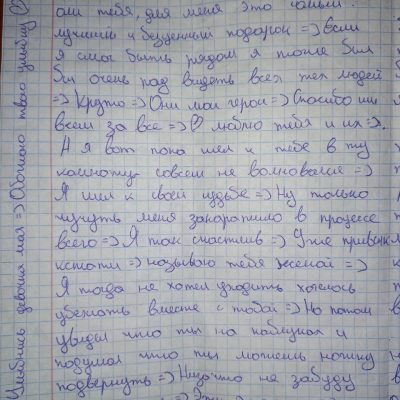 они тебя, для меня это самый
лучший и бесценный подарок => Если
я смог быть рядом я тоже был
бы очень рад видеть всех тех людей
=> Круто => Они мои герои => Спасибо им
всем за все => ♡ люблю тебя и их =>.
А я вот пока шел к тебе в ту
комнату совсем не волновался =>
Я шел к своей судьбе => Ну только
чучуть меня закаратило в процессе
всего => Я так счастлив => Уже привык
кстати => называю тебя женой =>
Я тогда не хотел уходить хотелось
убежать вместе с тобой => Но потом
увидел что ты на каблуках и
подумал что ты можешь ножку
подвернуть => Низачто не забуду
Улыбнись девочка моя => Обожаю твою улыбку ♡